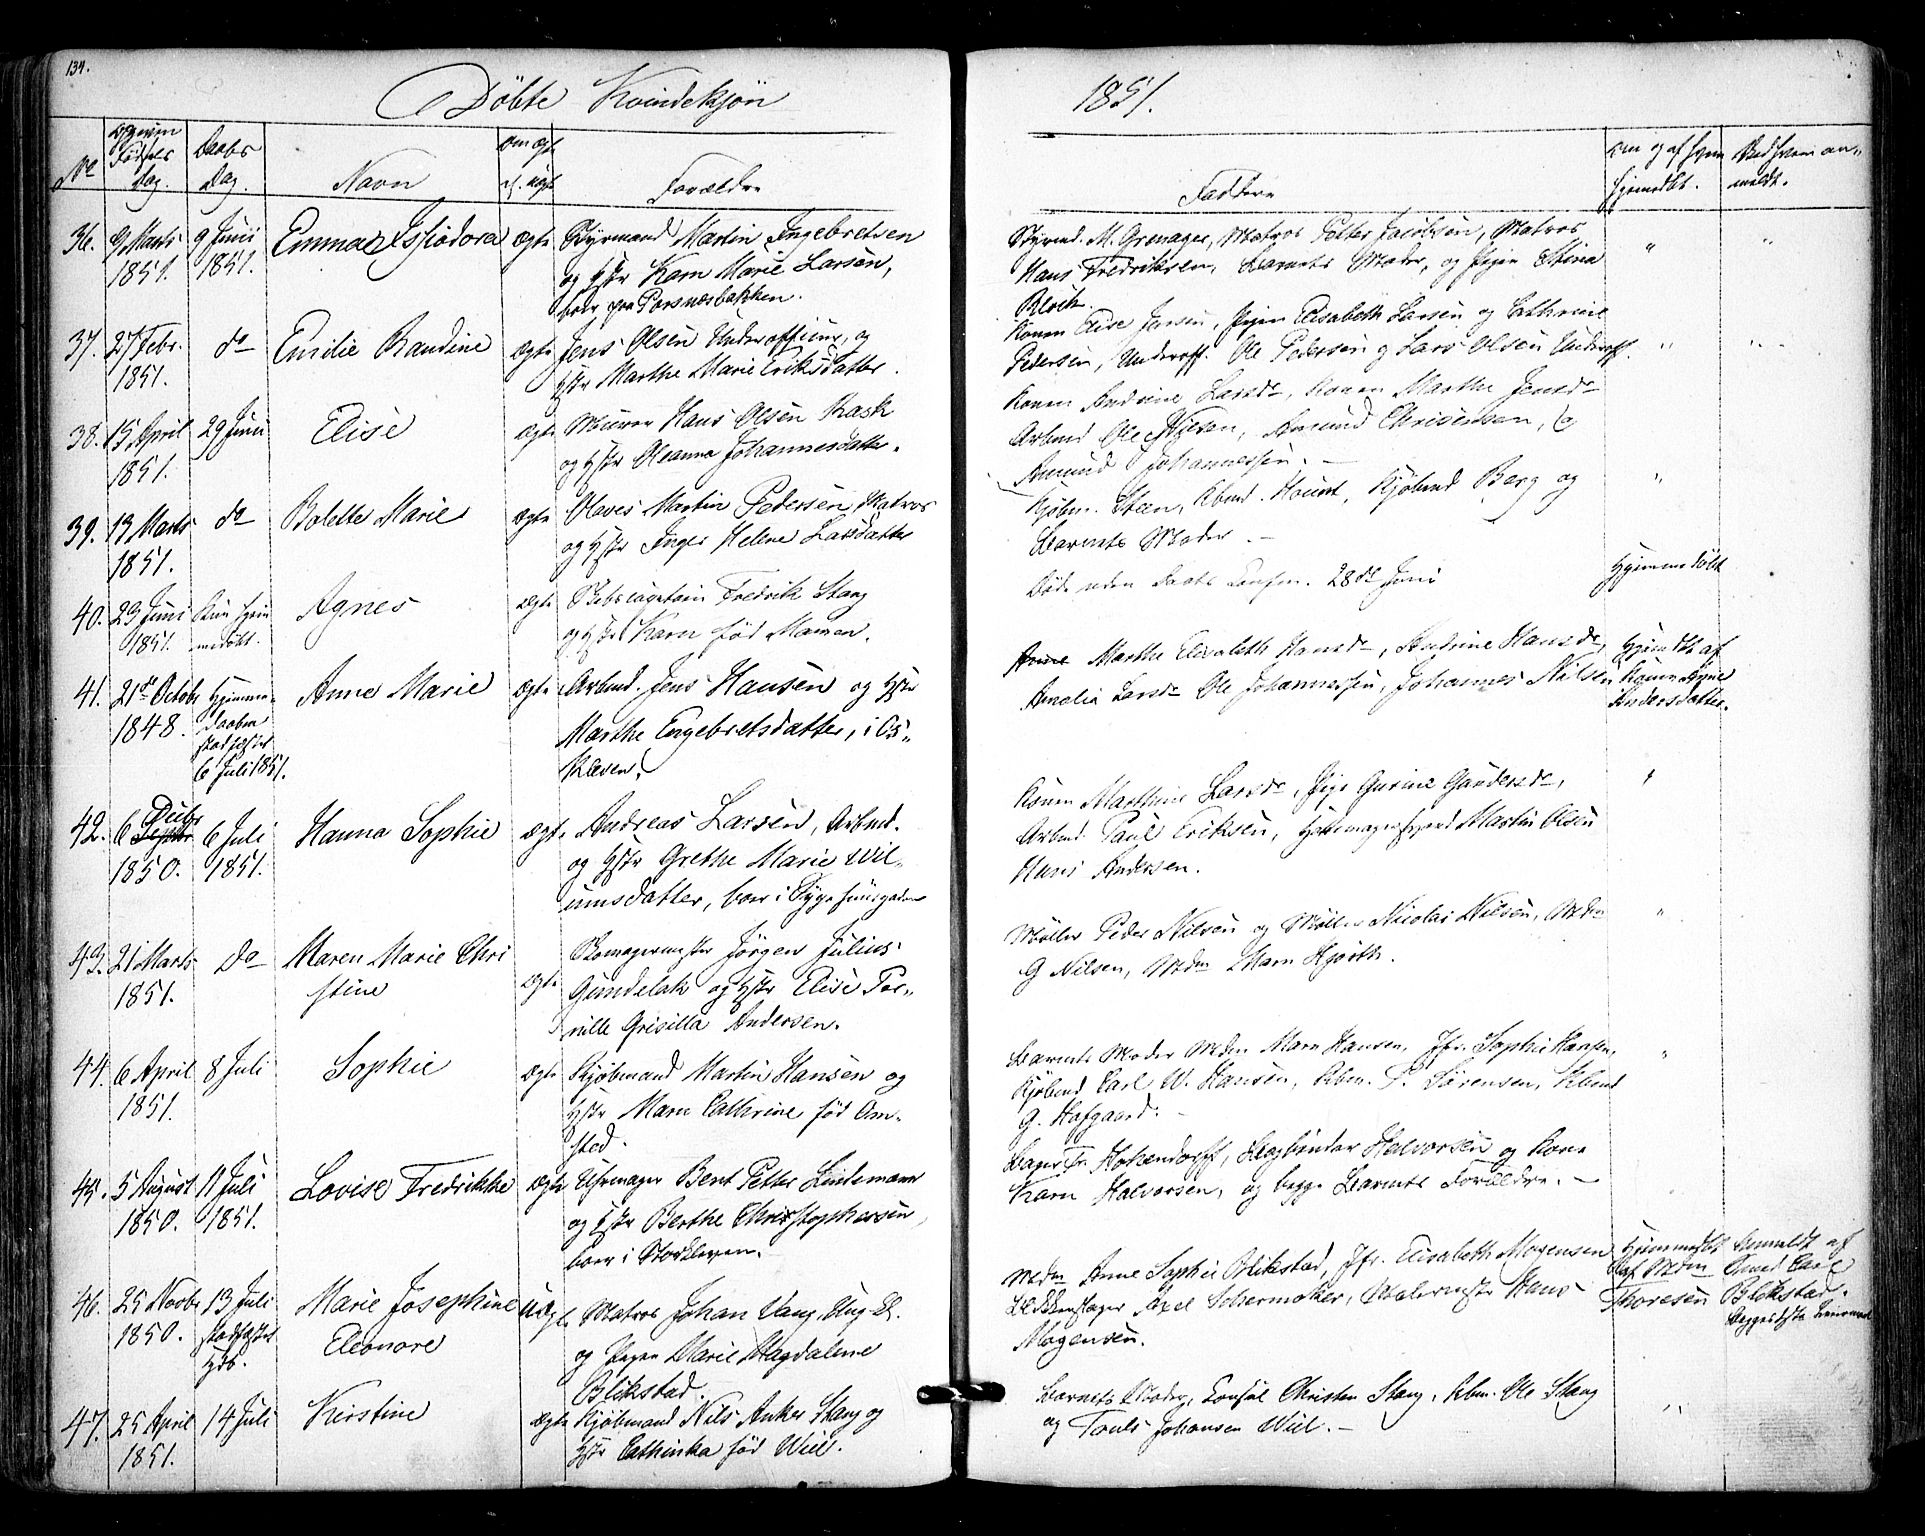 134.
Döbte Kvindekjön
1851.
No
Födsels Dag.
Daabs Dag.
Navn
Forældre
Faddere
36. 9 Marts 1851. 9 Juni 1851. Emma Issidora ægte Styrmand Martin Ingebretsen
og Hstr Karn Marie Larsen,
boer paa
Styrmd. M. Grenager, Matros Petter Jacobsen, Matros
Hans Fredriksen, Barnets Moder, og Pigen Stina
37. 27 Febr. 1851. do Emilie Randine ægte Jens Olsen Underofficeer, og
Hstr Marthe Marie Eriksdatter.
Konen Elise Jensen, Pigen Elisabeth Larsen og Cathrine
Pedersen, Underoff. Ole Pedersen og Lars Olsen Underoff.
38. 15 April 1851. 29 Juni Elise ægte Murer Hans Olsen Rask
og Hstr Oleanna Johannesdatter.
Konen Andrine Larsdr, Konen Marthe Jensdr
Arbmd Ole Nilsen, Amund Christensen, og
Amund Johannessen. –
39. 13 Marts 1851. do Bolette Marie ægte Olaves Martin Pedersen, Matros
og Hstr Inger Helene Larsdatter
Kjöbm. Steen, Kjöbmd Berg og
Barnets Moder. –
40. 23 Juni 1851. Kun hjemmedöbt. Agnes ægte Skibscapitain Fredrik Stang
og Hstr Karn fød Mamen.
Döde uden Daabs 28de Juni
Hjemmedöbt
41. 21de Octobr 1848. Hjemmedaaben stadfæstet 6 Juli 1851. Anne Marie ægte Arbmd. Jens Hansen og Hstr
Marthe Engebretsdatter, i Os„
kleven.
Marthe Elisabeth Hansdr, Andrine Hansdr,
Amalia Larsdr Ole Johannessen, Johannes Nilsen
Hjemdbt af Konen Anne Andersdatter.
42. 6 Decbr 1850. 6 Juli 1851. Hanna Sophie ægte Andreas Larsen, Arbmd.
og Hstr Grethe Marie Wil„
umsdatter, boer i
Konen Marthine Larsdr, Pige Gurine Gundersdr,
Arbmd. Paul Eriksen, Hattemagersvend Martin Olsen
Hans Andersen.
43. 21 Marts 1851. do Maren Marie Chri
stine ægte Skomagermester Jörgen Julius
Gundelah og Hstr Elise Per„
nille Grisilla Andersen.
Möller Peder Nilsen og Möller Nicolai Nilsen, Mdm
G Nilsen, Mdm Marn Hjorth.
44. 6 April 1851. 8 Juli Sophie ægte Kjöbmand Martin Hansen og
Hstr Marn Cathrine fød Om„
sted.
Barnets Moder Mdm Marn Hansen, Jfr. Sophie Hansen,
Kjöbmd Carl W. Hansen, Kbm. P. Sörensen, Kbmd
G. Hafgaard.
45. 5 August 1850. 11 Juli 1851. Lovise Fredrikke ægte Uhrmager Bent Petter Lindemann
og Hstr Berthe Christophersen,
boer i Storkleven.
Bager Fr. Hohendorff, Bogbinder Halvorsen og Kone
Karn Halvorsen, og begge Barnets Forældre. –
46. 25 Novbr 1850. 13 Juli stadfæstet Hdb. Marie Josephine
Eleonore uægte Matros Johan Vang, Ung K.
og Pigen Marie Magdalene
Blikstad.
Mdm Anne Sophie Blikstad, Jfr. Elisabeth Mogensen
Blikkenslager Axel Schermaker, Malermester Hans
Mogensen.
Hjemmedbt af Mdm Thoresen
Anmeldt af Carl Blikstad.
47. 25 April 1851. 14 Juli Kirstine ægte Kjöbmand Nils Anker Stang og
Hstr Cathinka fød Wiel.
Barnets Moder, Consul Christen Stang, Kbm. Ole Stang
og Johansen Wiel. –